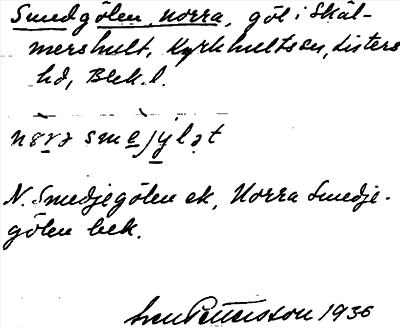 Smedgölen, norra, göl i Skäl-
mershult, Kyrkhults sn, Listers
hd, Blek. l.
nɷrə smejylət
N. Smedjegölen ek, Norra Smedje-
gölen bek.
Sven Pettersson 1936